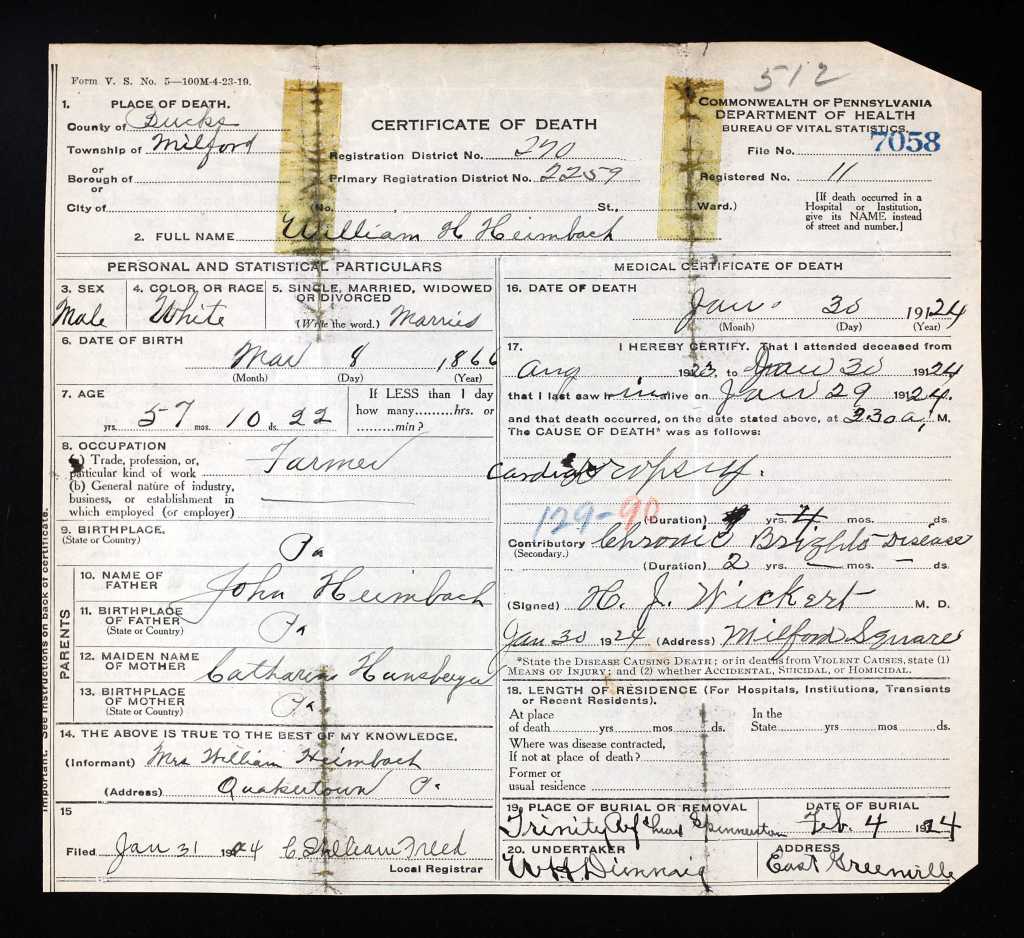 512
Form V. S. No. 5—100M-4-23-19.
1. PLACE OF DEATH.
County of Bucks
Township of Milford
or
Borough of
or
City of
CERTIFICATE OF DEATH
Registration District No. 270
Primary Registration District No. 2259
(No. , St., Ward.)
COMMONWEALTH OF PENNSYLVANIA
DEPARTMENT OF HEALTH
BUREAU OF VITAL STATISTICS.
File No. 7058
Registered No. 11
[If death occurred in a
Hospital or Institution,
give its NAME instead
of street and number.]
2. FULL NAME William H Heimbach
PERSONAL AND STATISTICAL PARTICULARS
3. SEX
Male
4. COLOR OR RACE
White
5. SINGLE, MARRIED, WIDOWED
OR DIVORCED
(Write the word.) Married
6. DATE OF BIRTH
Mar 8 1866
(Month) (Day) (Year)
7. AGE
57 yrs. 10 mos. 22 ds.
If LESS than 1 day
how many.........hrs. or
.........min?
8. OCCUPATION
(a) Trade, profession, or,
particular kind of work Farmer
(b) General nature of industry,
business, or establishment in
which employed (or employer)
9. BIRTHPLACE.
(State or Country)
Pa
PARENTS
10. NAME OF
FATHER John Heimbach
11. BIRTHPLACE
OF FATHER
(State or Country) Pa
12. MAIDEN NAME
OF MOTHER Catharine Hunsberger
13. BIRTHPLACE
OF MOTHER
(State or Country) Pa
14. THE ABOVE IS TRUE TO THE BEST OF MY KNOWLEDGE.
(Informant) Mrs William Heimbach
(Address) Quakertown Pa
15
Filed Jan 31 1924 C. William Freed
Local Registrar
Important. See instructions on back of certificate.
MEDICAL CERTIFICATE OF DEATH
16. DATE OF DEATH
Jan 30 1924
(Month) (Day) (Year)
17. I HEREBY CERTIFY. That I attended deceased from
Aug 1923, to Jan 30 1924
that I last saw him alive on Jan 29 1924.
and that death occurred, on the date stated above, at 230 a, M.
The CAUSE OF DEATH* was as follows:
Cardiac Dropsy.
129-90
(Duration) yrs. 4 mos. ds.
Contributory Chronic Brights Disease
(Secondary.)
(Duration) 2 yrs. — mos. — ds.
(Signed) H. J. Wickert M. D.
Jan 30 1924 (Address) Milford Square
*State the DISEASE CAUSING DEATH; or in deaths from VIOLENT CAUSES, state (1)
MEANS OF INJURY; and (2) whether ACCIDENTAL, SUICIDAL, or HOMICIDAL.
18. LENGTH OF RESIDENCE (For Hospitals, Institutions, Transients
or Recent Residents).
At place
of death yrs mos ds.
In the
State yrs mos ds.
Where was disease contracted,
If not at place of death?
Former or
usual residence
19. PLACE OF BURIAL OR REMOVAL
Trinity Ref Spinnerstown
DATE OF BURIAL
Feb. 4 1924
20. UNDERTAKER
W H Dimmig
ADDRESS
East Greenville